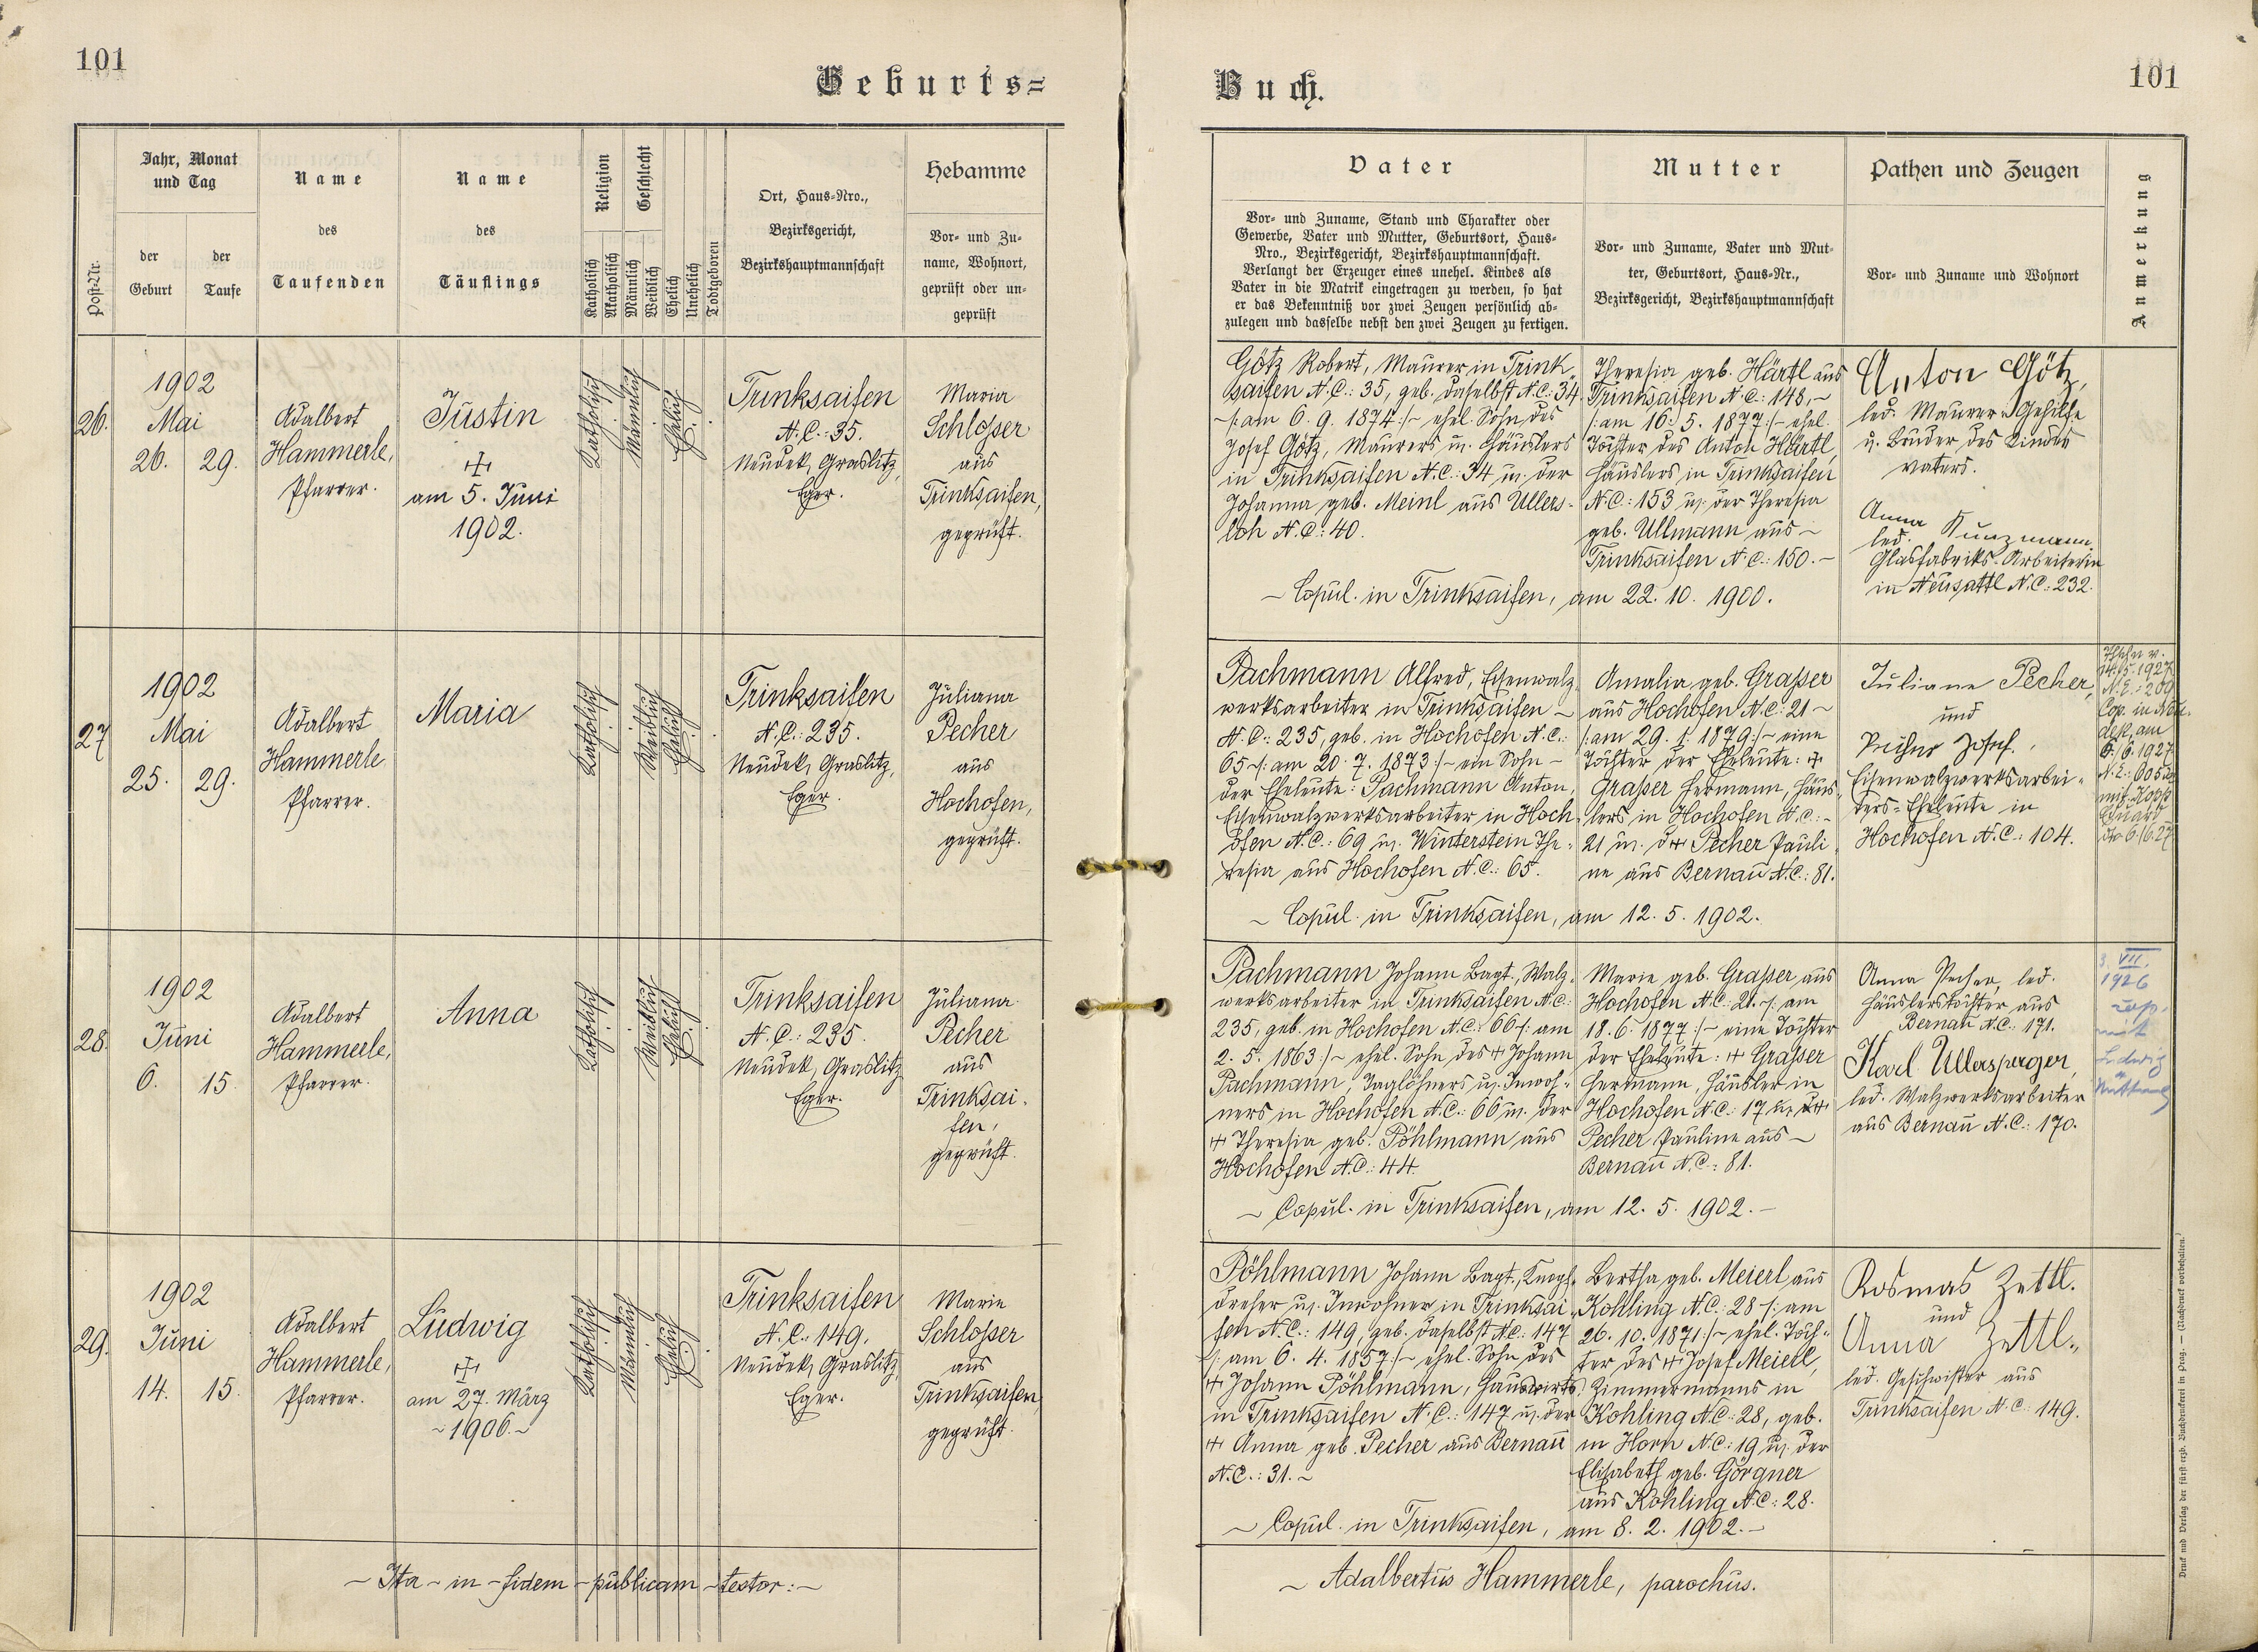 101
Geburts=
Jahr, Monat
und Tag
Name
Name
Religion
Geschlecht
Ort, Haus=Nro.,
Hebamme
Post=Nr.
der
Geburt
der
Taufe
des
Taufenden
des
Täuflings
Katholisch
Akatholisch
Männlich
Weiblich
Ehelich
Unehelich
Todtgeboren
Bezirksgericht,
Bezirkshauptmannschaft
Vor= und Zu=
name, Wohnort,
geprüft oder un=
geprüft
26.
1902
Mai
26. 29.
Adalbert
Hammerle,
Pfarrer.
Justin
am 5. Juni
1902.
Katholisch
Männlich
Ehelich
Trinksaifen
N.C.: 35.
Neudek, Graslitz,
Eger.
Maria
Schlosser
aus
Trinksaifen,
geprüft.
27
1902
Mai
25. 29.
Adalbert
Hammerle
Pfarrer.
Maria
Katholisch
Weiblich
Ehelich
Trinksaifen
N.C.: 235.
Neudek, Graslitz,
Eger.
Juliana
Pecher
aus
Hochofen,
geprüft.
28.
1902
Juni
6. 15.
Adalbert
Hammerle,
Pfarrer.
Anna
Katholisch
Weiblich
Ehelich
Trinksaifen
N.C.: 235.
Neudek, Graslitz
Eger.
Juliana
Pecher
aus
Trinksai=
fen,
geprüft.
29.
1902
Juni
14. 15.
Adalbert
Hammerle,
Pfarrer.
Ludwig
am 27. März
~1906.~
Katholisch
Männlich
Ehelich
Trinksaifen
N.C.: 149.
Neudek, Graslitz,
Eger.
Marie
Schlosser
aus
Trinksaifen,
geprüft.
~ Ita ~ in ~ fidem ~ publicam ~ testor: ~
Buch.
101
Vater
Mutter
Pathen und Zeugen
Anmerkung
Vor= und Zuname, Stand und Charakter oder
Gewerbe, Vater und Mutter, Geburtsort, Haus=
Nro., Bezirksgericht, Bezirkshauptmannschaft.
Verlangt der Erzeuger eines unehel. Kindes als
Vater in die Matrik eingetragen zu werden, so hat
er das Bekenntniß vor zwei Zeugen persönlich ab=
zulegen und dasselbe nebst den zwei Zeugen zu fertigen.
Vor= und Zuname, Vater und Mut=
ter, Geburtsort, Haus=Nr.,
Bezirksgericht, Bezirkshauptmannschaft
Vor= und Zuname und Wohnort
Götz Robert, Maurer in Trink=
saifen N.C.: 35, geb. daselbst N.C: 34
~/: am 6. 9. 1874 :/~ ehel. Sohn des
Josef Götz, Maurers u. Häuslers
in Trinksaifen N.C.: 34 u. der
Johanna geb. Meinl aus Ullers=
loh N.C.: 40.
Theresia geb. Härtl aus
Trinksaifen N.C.: 148, ~
/: am 16. 5. 1877 :/~ ehel.
Tochter des Anton Härtl,
Häuslers in Trinksaifen
N.C.: 153 u. der Theresia
geb. Ullmann aus ~
Trinksaifen N.C.: 150. ~
~ Copul. in Trinksaifen, am 22. 10. 1900.
Anton Götz,
led. Maurer=Gehilfe
u. Bruder des Kindes
vaters.
Anna Kunzmann
led.
Glasfabriks=Arbeiterin
in Neusattl N.C.: 232.
Pachmann Alfred, Eisenwalz=
werksarbeiter in Trinksaifen ~
N.C.: 235, geb. in Hochofen N.C.:
65 ~/: am 20. 7. 1873 :/~ ein Sohn ~
der Eheleute: Pachmann Anton,
Eisenwalzwerksarbeiter in Hoch=
ofen N.C.: 69 u. Winterstein The=
resia aus Hochofen N.C.: 65.
Amalia geb. Grasser
aus Hochofen N.C.: 21 ~
/: am 29. 1. 1879 :/~ eine
Tochter der Eheleute: +
Grasser Hermann, Häus=
lers in Hochofen N.C.: ~
21 u. d + Pecher Pauli=
ne aus Bernau N.C.: 81.
~ Copul. in Trinksaifen, am 12. 5. 1902.
Juliane Pecher,
und
Josef.,
Eisenwalzwerksarbei=
ters=Eheleute in
Hochofen N.C.: 104.
14./5. 1927
Cop. in
am
6./6. 1927
mit
Pachmann Johann Bapt., Walz=
werksarbeiter in Trinksaifen N.C.:
235, geb. in Hochofen N.C.: 66 /: am
2. 5. 1863 :/~ ehel. Sohn des + Johann
Pachmann, Taglöhners u. Inwoh=
ners in Hochofen N.C.: 66 u. der
+ Theresia geb. Pöhlmann aus
Hochofen N.C.: 44
Marie geb. Grasser aus
Hochofen N.C.: 21. ~/: am
18. 6. 1877 :/~ eine Tochter
der Eheleute: + Grasser
Hermann, Häusler in
Hochofen N.C.: 17 u. d +
Pecher Pauline aus ~
Bernau N.C.: 81.
~ Copul. in Trinksaifen, am 12. 5. 1902. ~
Anna Pecher, led.
Häuslerstochter aus
Bernau N.C.: 171.
Karl Ullersperger,
led. Walzwerksarbeiter
aus Bernau N.C.: 170.
3. VII.
1926
mit
Ludwig
Pöhlmann Johann Bapt., Knopf=
dreher u. Inwohner in Trinksai=
fen N.C.: 149, geb. daselbst N.C.: 147
/: am 6. 4. 1857 :/~ ehel. Sohn des
+ Johann Pöhlmann, Hauswirts
in Trinksaifen N.C.: 147 u. der
+ Anna geb. Pecher aus Bernau
N.C.: 31. ~
Bertha geb. Meierl aus
Kohling N.C.: 28 /: am
26. 10. 1871 :/~ ehel. Toch=
ter des + Josef Meierl,
Zimmermanns in
Kohling N.C.: 28, geb.
in Horn N.C.: 19 u. der
Elisabeth geb. Görgner
aus Kohling N.C.: 28.
~ Copul. in Trinksaifen, am 8. 2. 1902. ~
Kosmas Zettl.
und
Anna Zettl.,
led. Geschwister aus
Trinksaifen N.C.: 149.
~ Adalbertus Hammerle, parochus.
Druck und Verlag der fürst-erzb. Buchdruckerei in Prag. — (Nachdruck vorbehalten.)